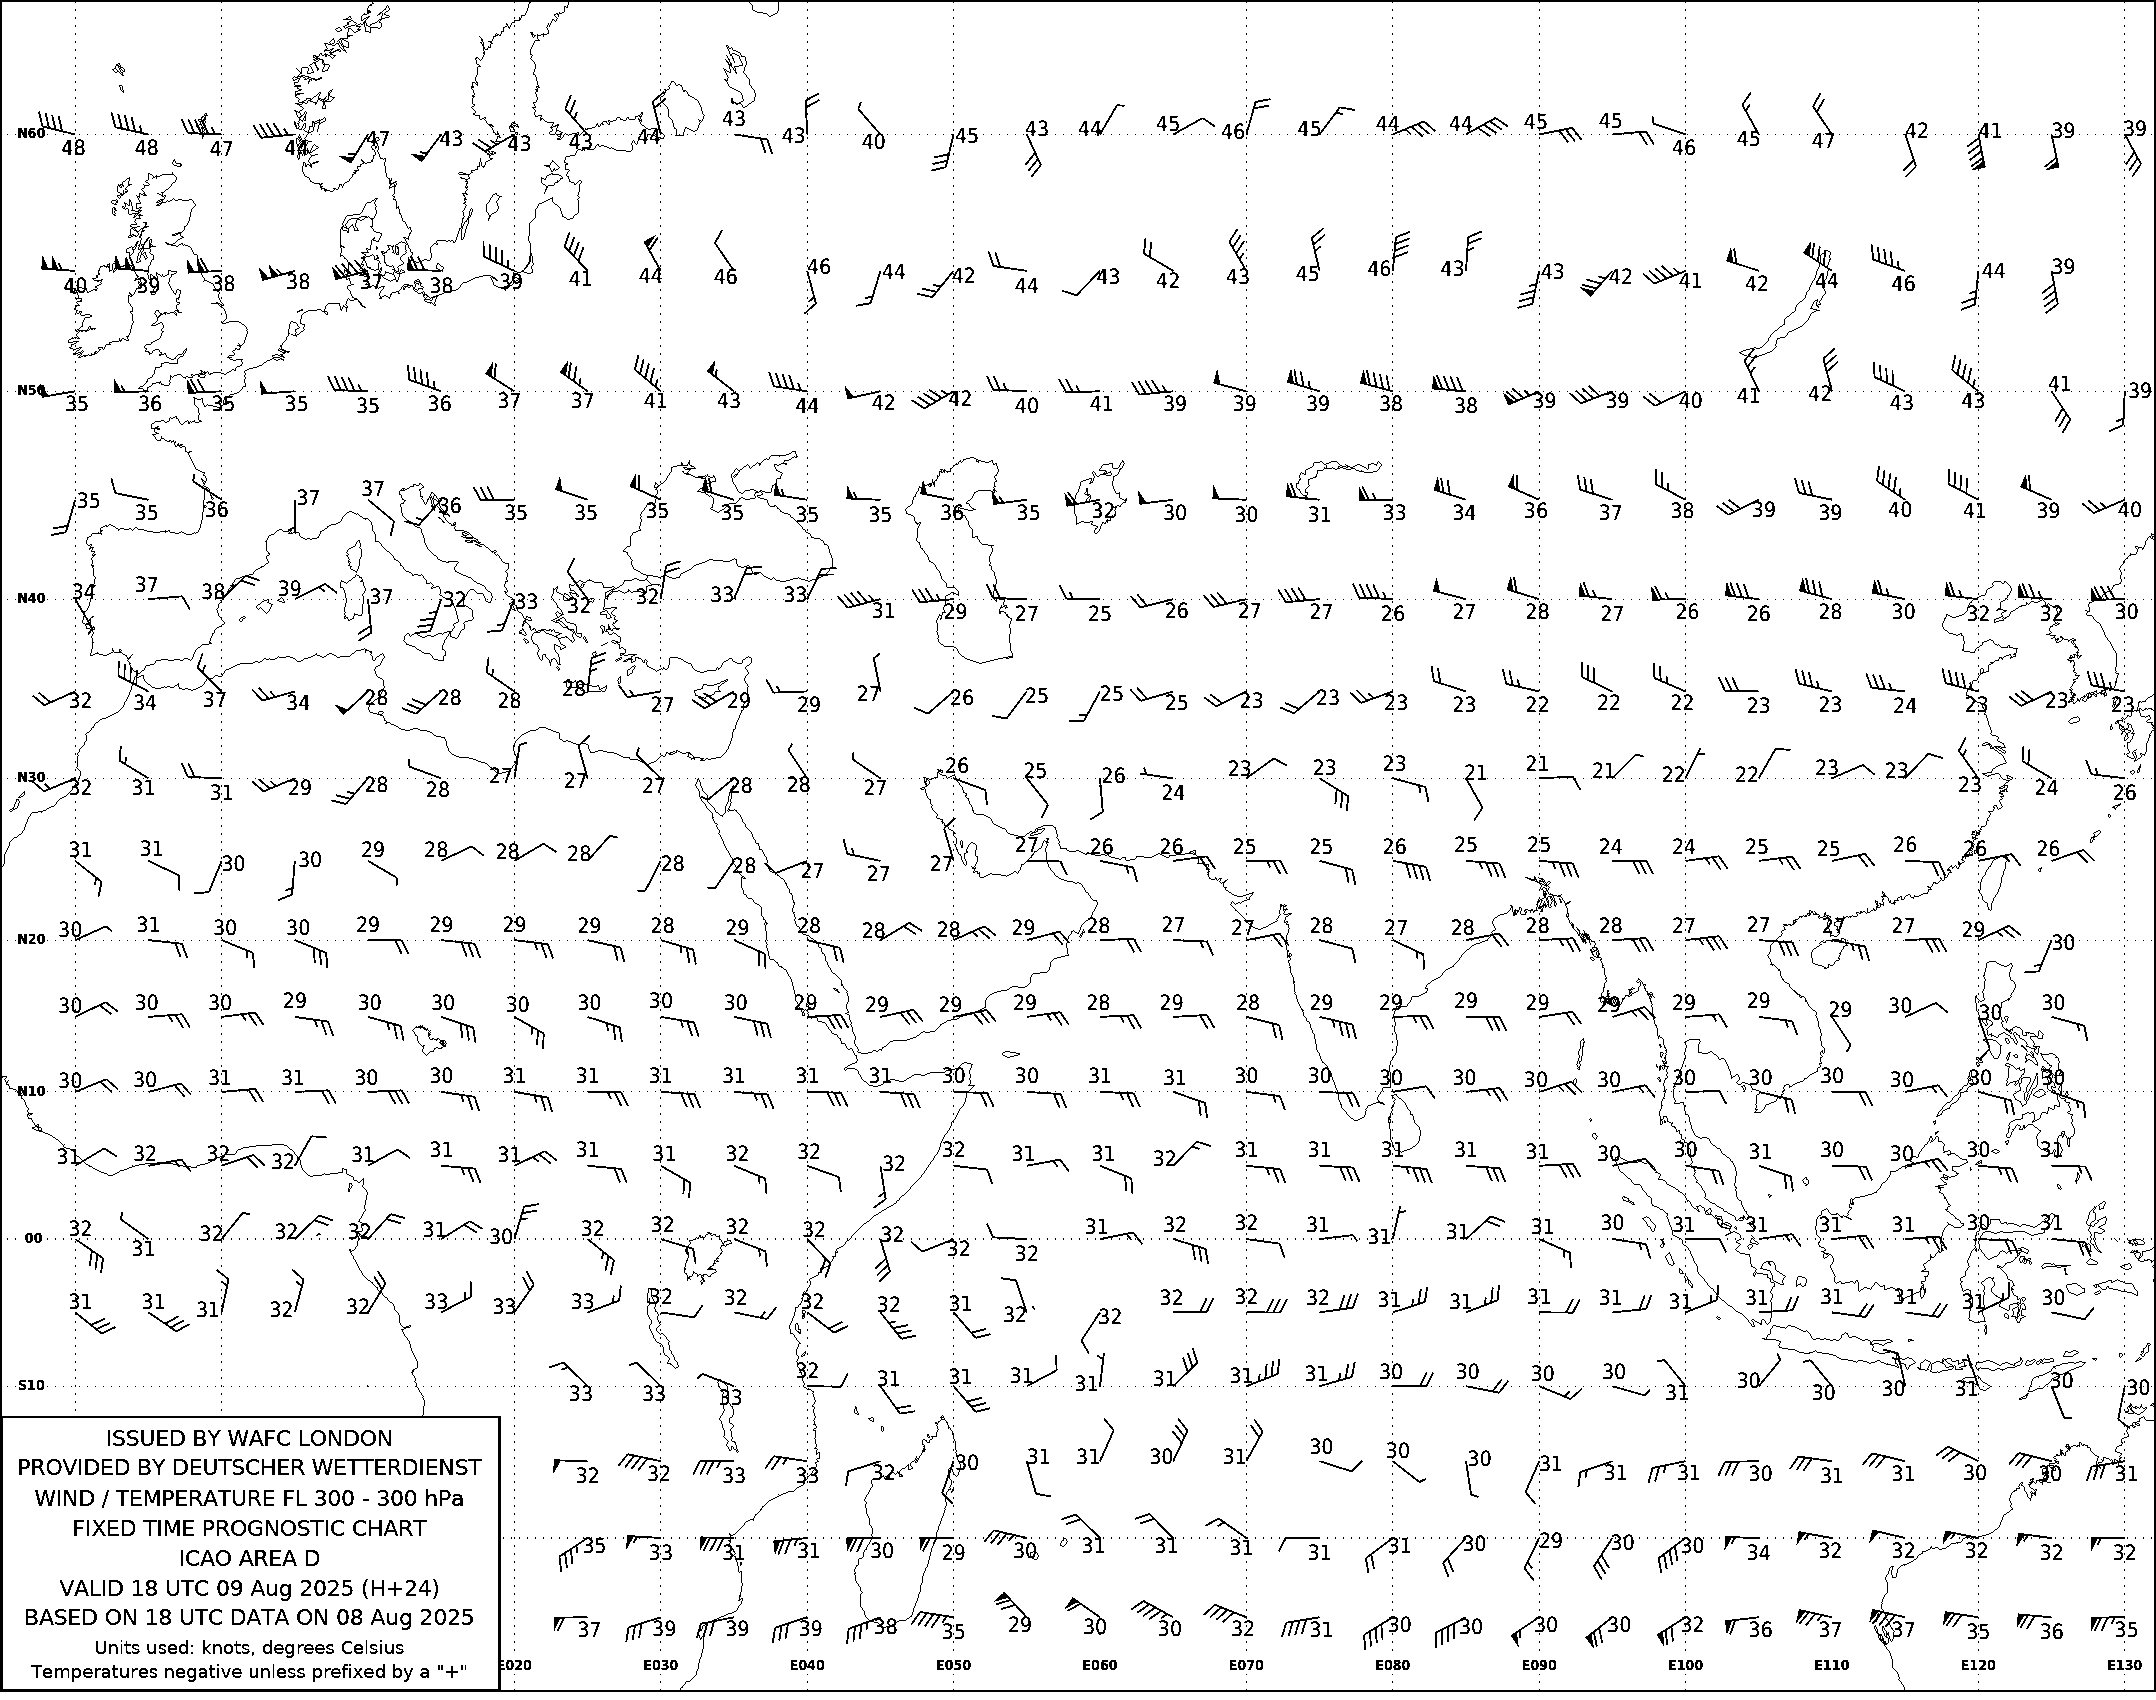 N60 48 48 47 44 47 43 43 43 44 43 43 40 45 43 44 45 46 45 44 44 45 45 46 45 47 42 41 39 39
40 39 38 38 37 38 39 41 44 46 46 44 42 44 43 42 43 45 46 43 43 42 41 42 44 46 44 39
N50 35 36 35 35 35 36 37 37 41 43 44 42 42 40 41 39 39 39 38 38 39 39 40 41 42 43 43 41 39
35 35 36 37 37 36 35 35 35 35 35 35 36 35 32 30 30 31 33 34 36 37 38 39 39 40 41 39 40
N40 34 37 38 39 37 32 33 32 32 33 33 31 29 27 25 26 27 27 26 27 28 27 26 26 28 30 32 32 30
32 34 37 34 28 28 28 28 27 29 29 27 26 25 25 25 23 23 23 23 22 22 22 23 23 24 23 23 23
N30 32 31 31 29 28 28 27 27 27 28 28 27 26 25 26 24 23 23 23 21 21 21 22 22 23 23 23 24 26
31 31 30 30 29 28 28 28 28 28 27 27 27 27 26 26 25 25 26 25 25 24 24 25 25 26 26 26
N20 30 31 30 30 29 29 29 29 28 29 28 28 28 29 28 27 27 28 27 28 28 28 27 27 27 27 29 30
30 30 30 29 30 30 30 30 30 30 29 29 29 29 28 29 28 29 29 29 29 29 29 29 29 30 30 30
N10 30 30 31 31 30 30 31 31 31 31 31 31 30 30 31 31 30 30 30 30 30 30 30 30 30 30 30 30
31 32 32 32 31 31 31 31 31 32 32 32 32 31 31 32 31 31 31 31 31 30 30 31 30 30 30 31
00 32 31 32 32 32 31 30 32 32 32 32 32 32 32 31 32 32 31 31 31 31 30 31 31 31 31 30 31
31 31 31 32 32 33 33 33 32 32 32 32 31 32 32 32 32 32 31 31 31 31 31 31 31 31 31 30
S10 33 33 33 32 31 31 31 31 31 31 31 30 30 30 30 31 30 30 30 31 30 30
32 32 33 33 32 30 31 31 30 31 30 30 30 31 31 31 30 31 31 30 30 31
35 33 31 31 30 29 30 31 31 31 31 31 30 29 30 30 34 32 32 32 32 32
37 39 39 39 38 35 29 30 30 32 31 30 30 30 30 32 36 37 37 35 36 35
ISSUED BY WAFC LONDON
PROVIDED BY DEUTSCHER WETTERDIENST
WIND / TEMPERATURE FL 300 - 300 hPa
FIXED TIME PROGNOSTIC CHART
ICAO AREA D
VALID 18 UTC 09 Aug 2025 (H+24)
BASED ON 18 UTC DATA ON 08 Aug 2025
Units used: knots, degrees Celsius
Temperatures negative unless prefixed by a "+"
E020 E030 E040 E050 E060 E070 E080 E090 E100 E110 E120 E130